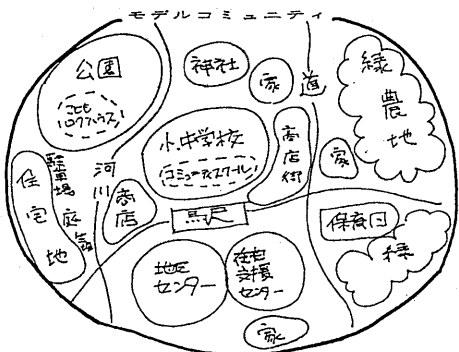 モデルコミュニティ
公園
こども
ログハウス
神社
家
道
緑
農
地
小・中学校
コミュニティスクール
商店街
家
駐車場
住宅地
庭
河川
商店
駅
保育園
緑
地区
センター
在宅
支援
センター
家